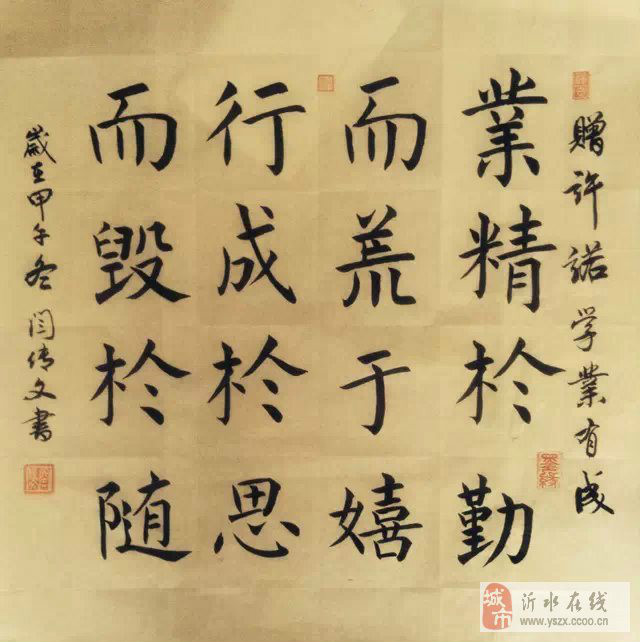 贈許諾学業有成
業精於勤
而荒于嬉
行成於思
而毀於随
歲在甲午冬闫倩文書
城市 沂水在线
www.yszx.ccoo.cn